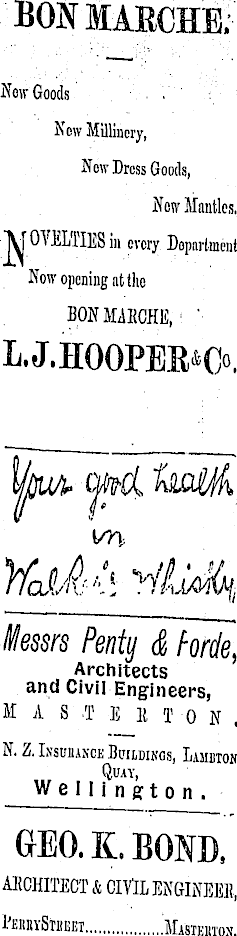 BON MARCHE.
New Goods
New Millinery,
New Dress Goods,
New Mantles.
NOVELTIES in every Department
Now opening at the
BON MARCHE,
L. J. HOOPER & Co.
Your good health
in
Walker's Whisky
Messrs Penty & Forde,
Architects
and Civil Engineers,
MASTERTON.
N. Z. INSURANCE BUILDINGS, LAMBTON
QUAY,
Wellington.
GEO. K. BOND,
ARCHITECT & CIVIL ENGINEER,
PERRY STREET..................MASTERTON.